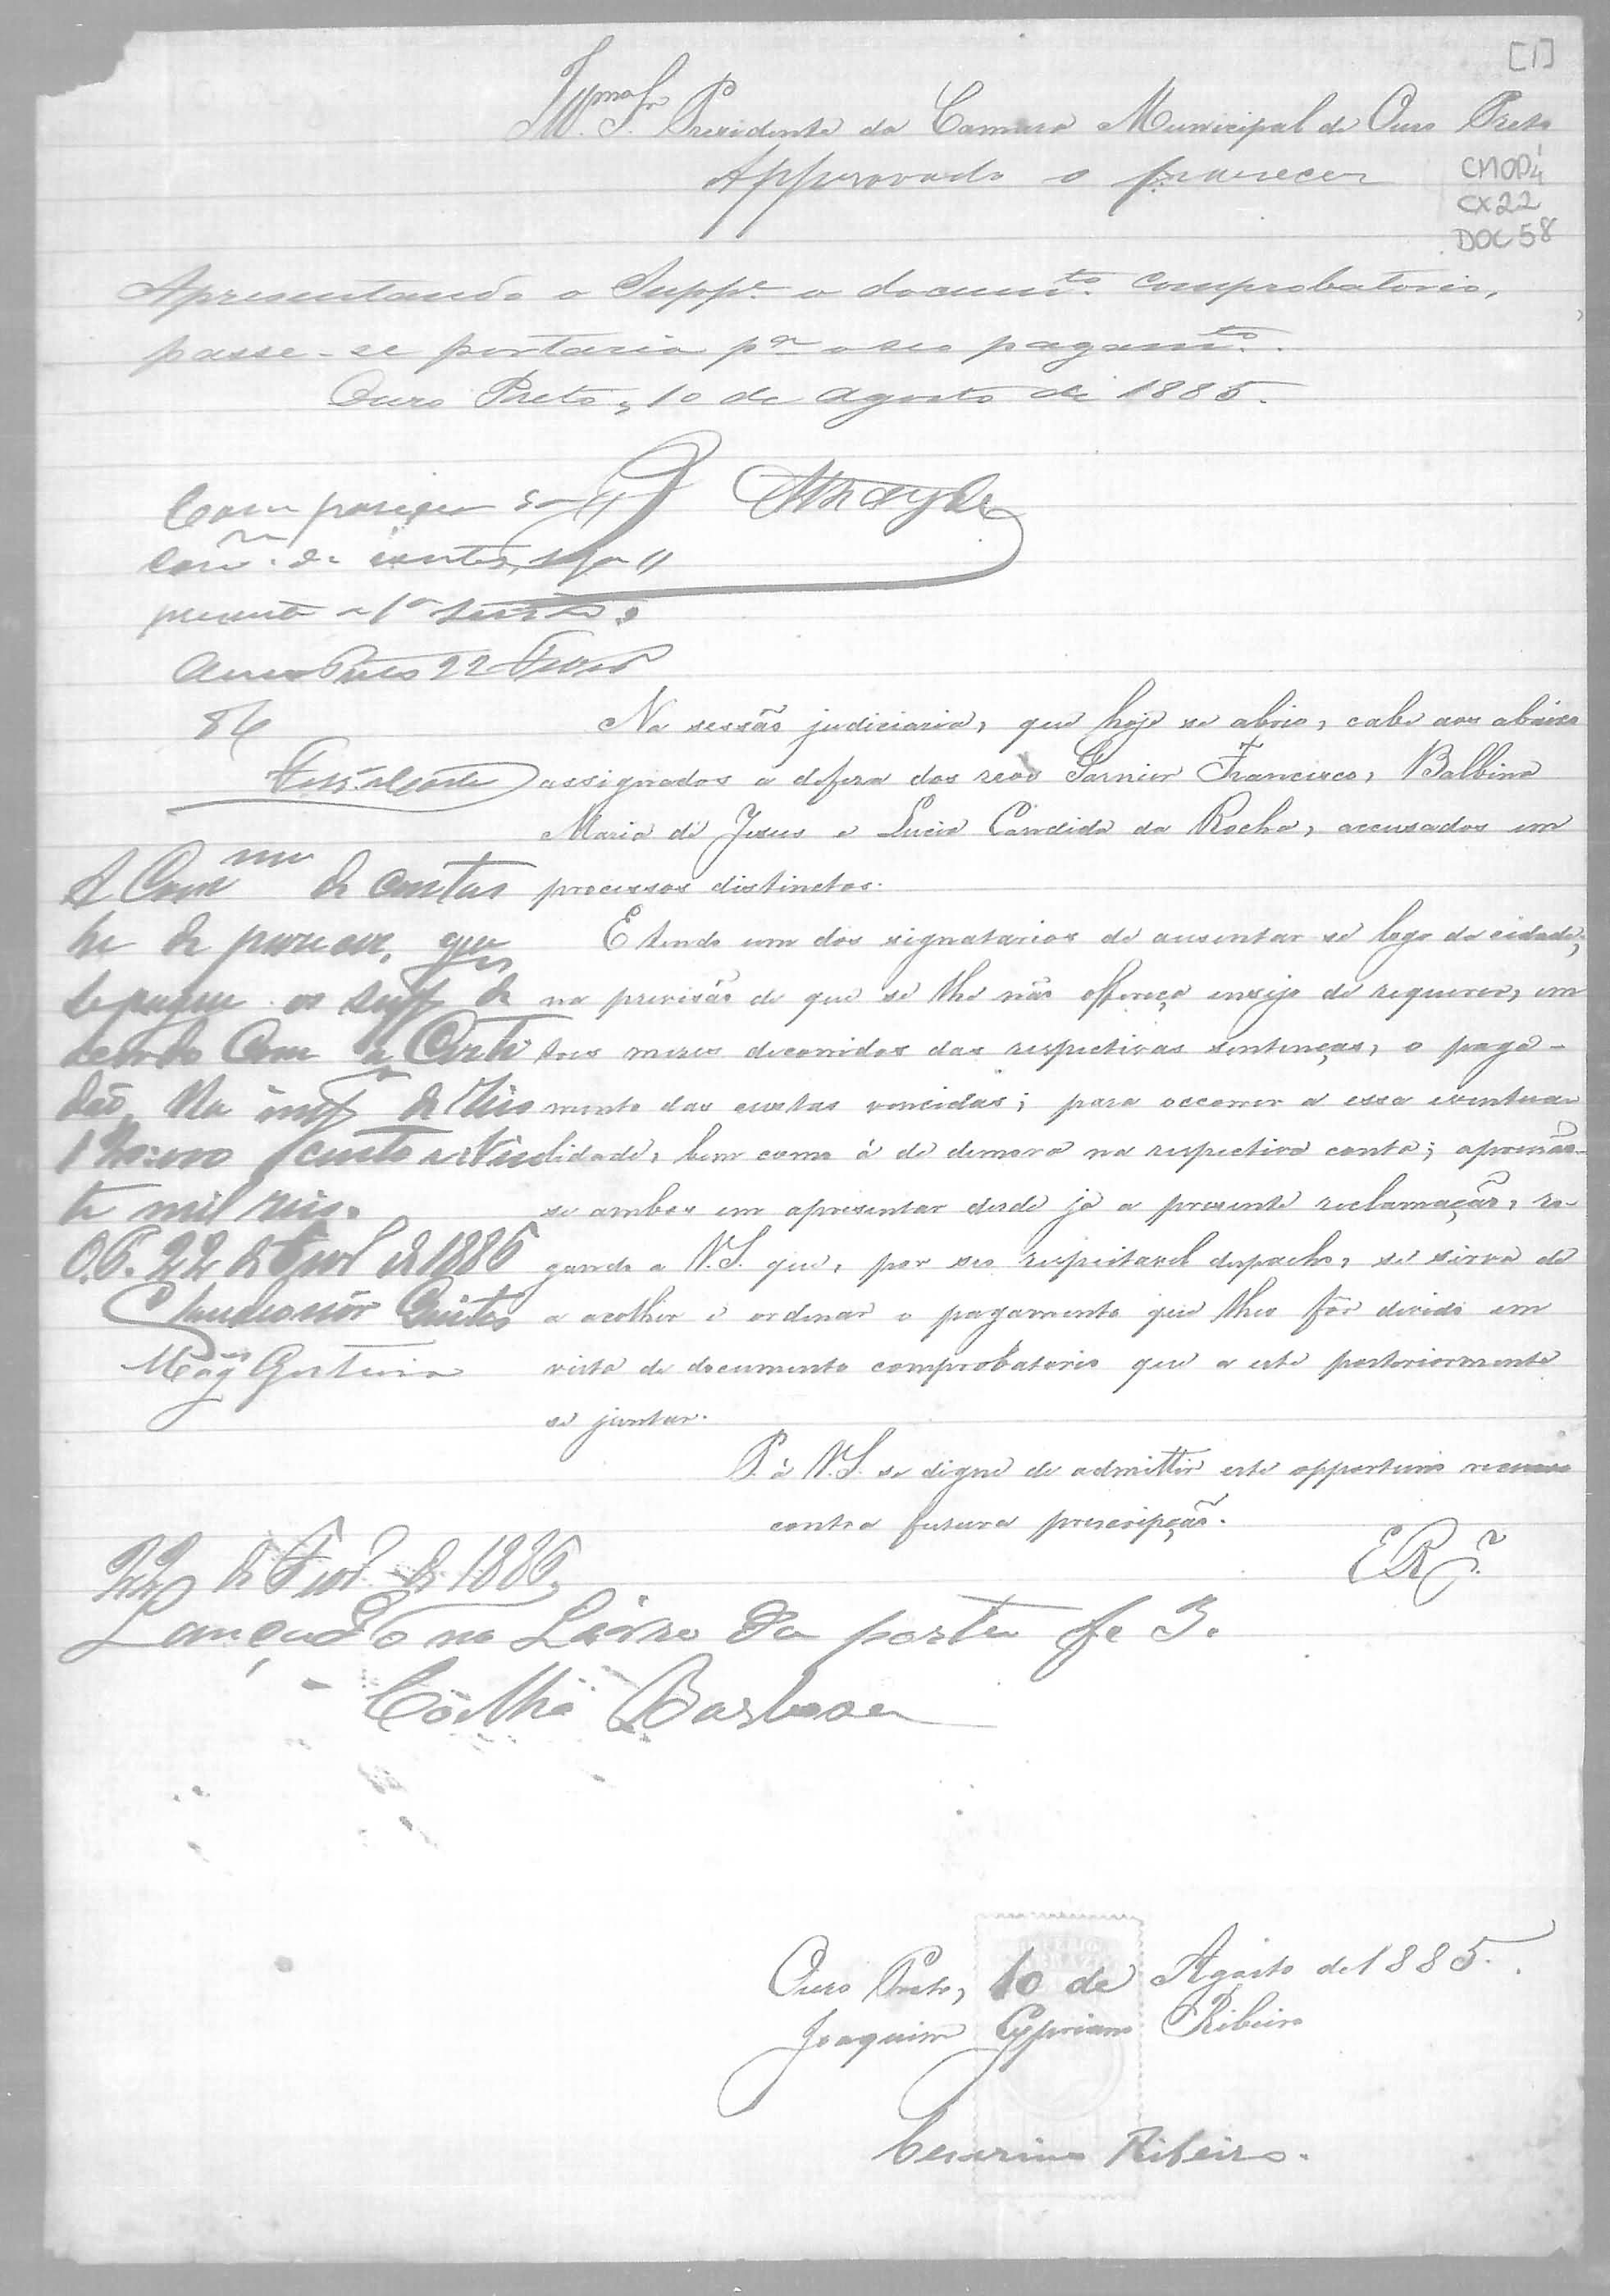 [1]
Illmo. Sr. Presidente da Camara Municipal de Ouro Preto
Approvado o parecer
CMOP
CX 22
DOC 58
Apresentando o Suppe. o documto. comprobatorio,
passe-se portaria pa o seo pagamto.
Ouro Preto, 10 de Agosto de 1885.
Com parecer da
Comm. de contas,
presente a 1a sessão.
Ouro Preto 22
86
Na sessão judiciaria, que hoje se abrio, cabe aos abaixo
assignados a defesa dos reos Garnier Francisco, Balbina
Maria de Jesus e Lucio Candido da Rocha, accusados em
processos distinctos.
E tendo um dos signatarios de ausentar se logo da cidade,
na previsão de que se lhe não offereça ensejo de requerer, em
tres mezes decorridos das respectivas sentenças, o paga-
mento das custas vencidas; para occorrer a essa eventua-
lidade, bem como á de demora na respectiva conta; apressão-
se ambos em apresentar desde já a presente reclamação, ro-
gando a V.S. que, por seo respeitavel despacho, se sirva de
a acolher e ordenar o pagamento que lhes fôr devido em
vista de documento comprobatorio que a este posteriormente
se juntar.
P. á V.S. se digne de admittir este opportuno recurso
contra futura prescripção.
E R Ce.
A Commm de contas
he de parecer, que
se pague os supp de
acordo com a Certi
dão, Na imp de Reis
cento e vin
te mil reis.
O. P. 22 de Fevo de 1886
22 de Fevo. de 1886,
Lançado no Livro da porta fe 3.
Coelho Barbosa
Ouro Preto, 10 de Agosto de 1885.
Joaquim Cypriano Ribeiro
Cesarino Ribeiro.